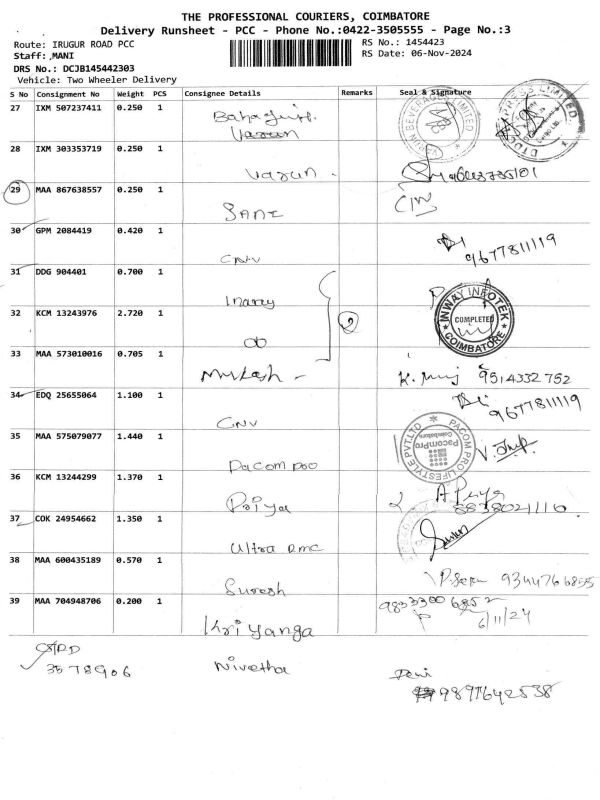 THE PROFESSIONAL COURIERS, COIMBATORE
Delivery Runsheet - PCC - Phone No.:0422-3505555 - Page No.:3
Route: IRUGUR ROAD PCC
RS No.: 1454423
Staff: MANI
RS Date: 06-Nov-2024
DRS No.: DCJB145442303
Vehicle: Two Wheeler Delivery
S No Consignment No Weight PCS Consignee Details Remarks Seal & Signature
27 IXM 507237411 0.250 1
Varun
28 IXM 303353719 0.250 1 Varun
29 MAA 867638557 0.250 1 SANI
30 GPM 2084419 0.420 1 CNV 9677811119
31 DDG 904401 0.700 1
INWAY INFOTEK COMPLETED COIMBATORE
32 KCM 13243976 2.720 1
33 MAA 573010016 0.705 1 Mukesh 9514332752
34 EDQ 25655064 1.100 1 CNV 9677811119
35 MAA 575079077 1.440 1 Pacom poo
PACOM PRO LIFESTYLE PVT LTD PacomPro Coimbatore
36 KCM 13244299 1.370 1 Priya A. Priya 8838021116
37 COK 24954662 1.350 1 Ultra RMC
38 MAA 600435189 0.570 1 Suresh 9344766855
39 MAA 704948706 0.200 1 Kriyanga 6/11/24
3578906 Nivetha Devi 9891642538